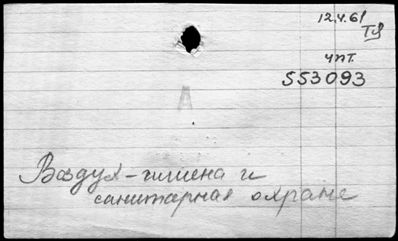 12.4.61
ТЯ
чпт.
553093
А
Воздух-гигиена и
санитарная охрана